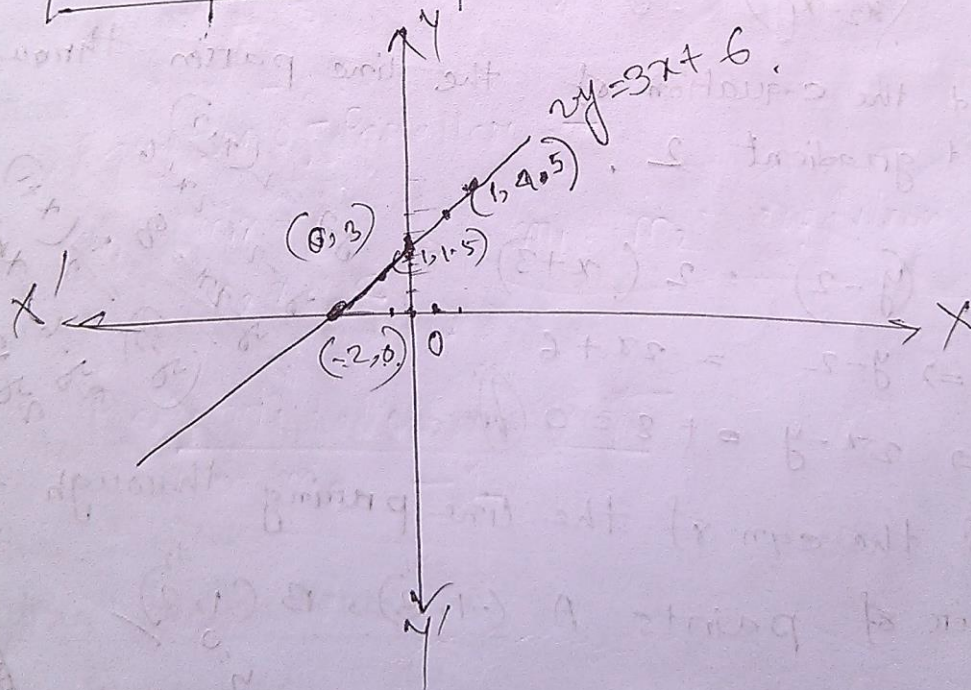 Y
2y=3x+ 6.
(1, 4.5)
(0, 3)
(1, 1.5)
X'
X
(-2, 0)
0
Y'